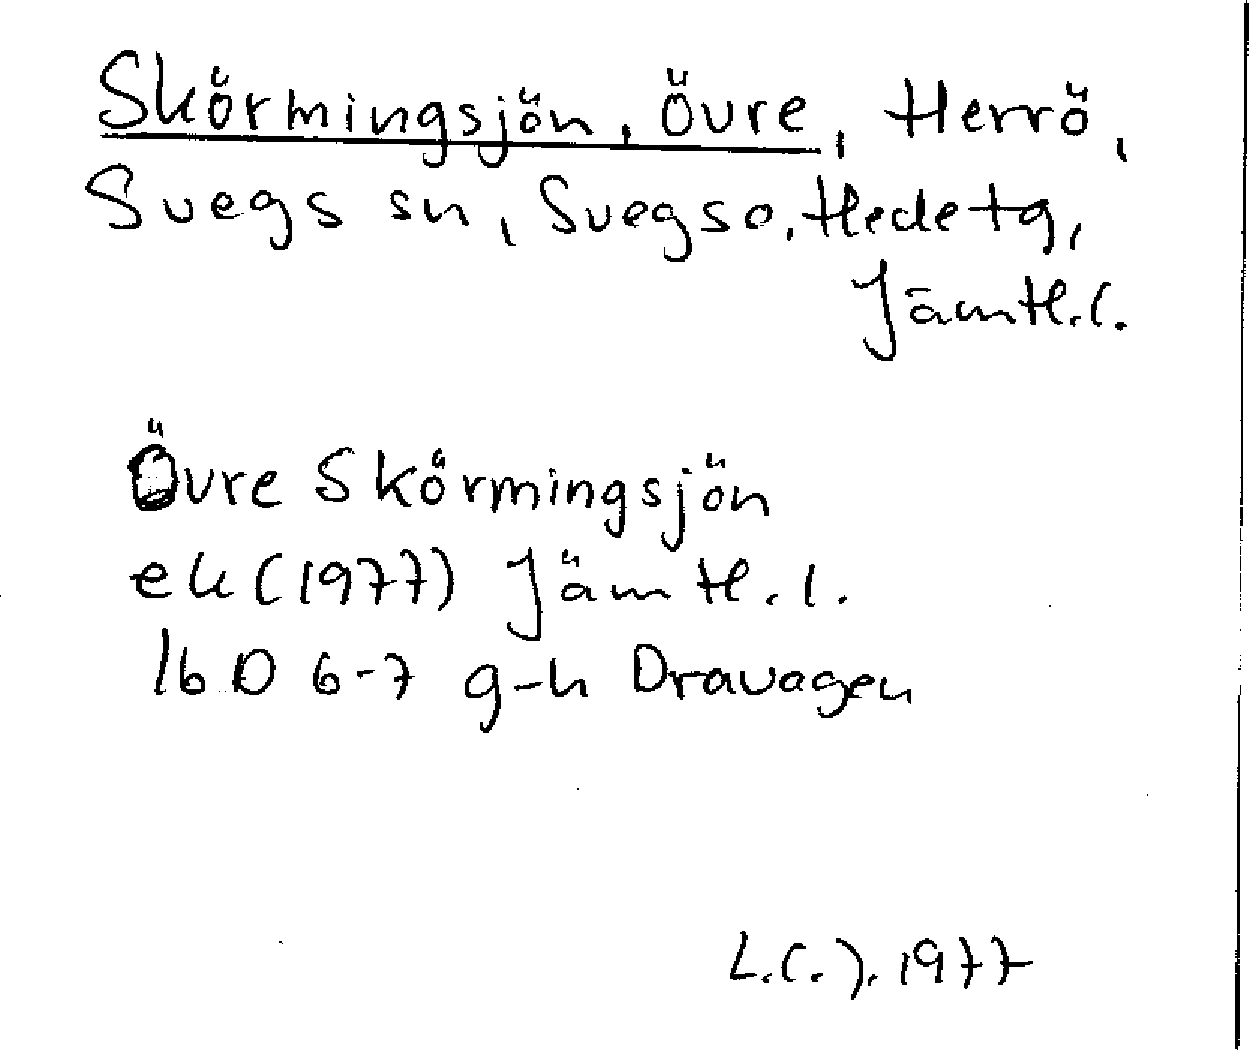 Skörmingsjön, Övre, Herrö,
Svegs sn, Svegs o. Hede tg,
Jämtl.l.
Övre Skörmingsjön
ek (1977) Jämtl.l.
16 D 6-7 g-h Dravagen
1977